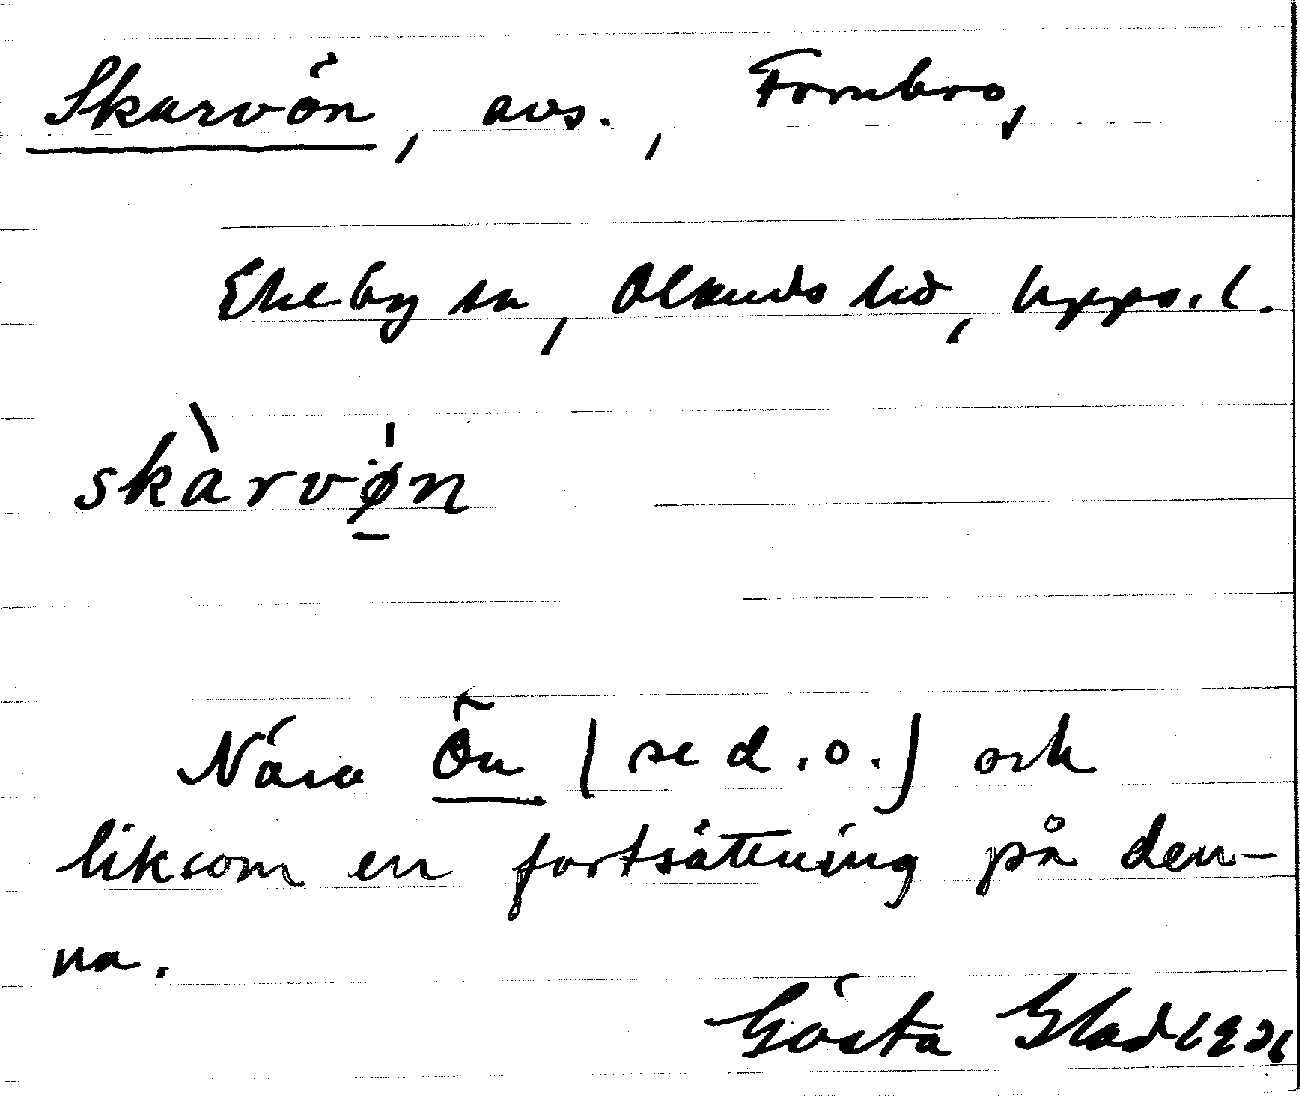 Skarvön, avs., Frombro,
Ekeby sn, Olands hd, Upps. l.
skàrvø̱n
Nära Ön (se d.o.) och
liksom en fortsättning på den-
na.
Gösta Glad